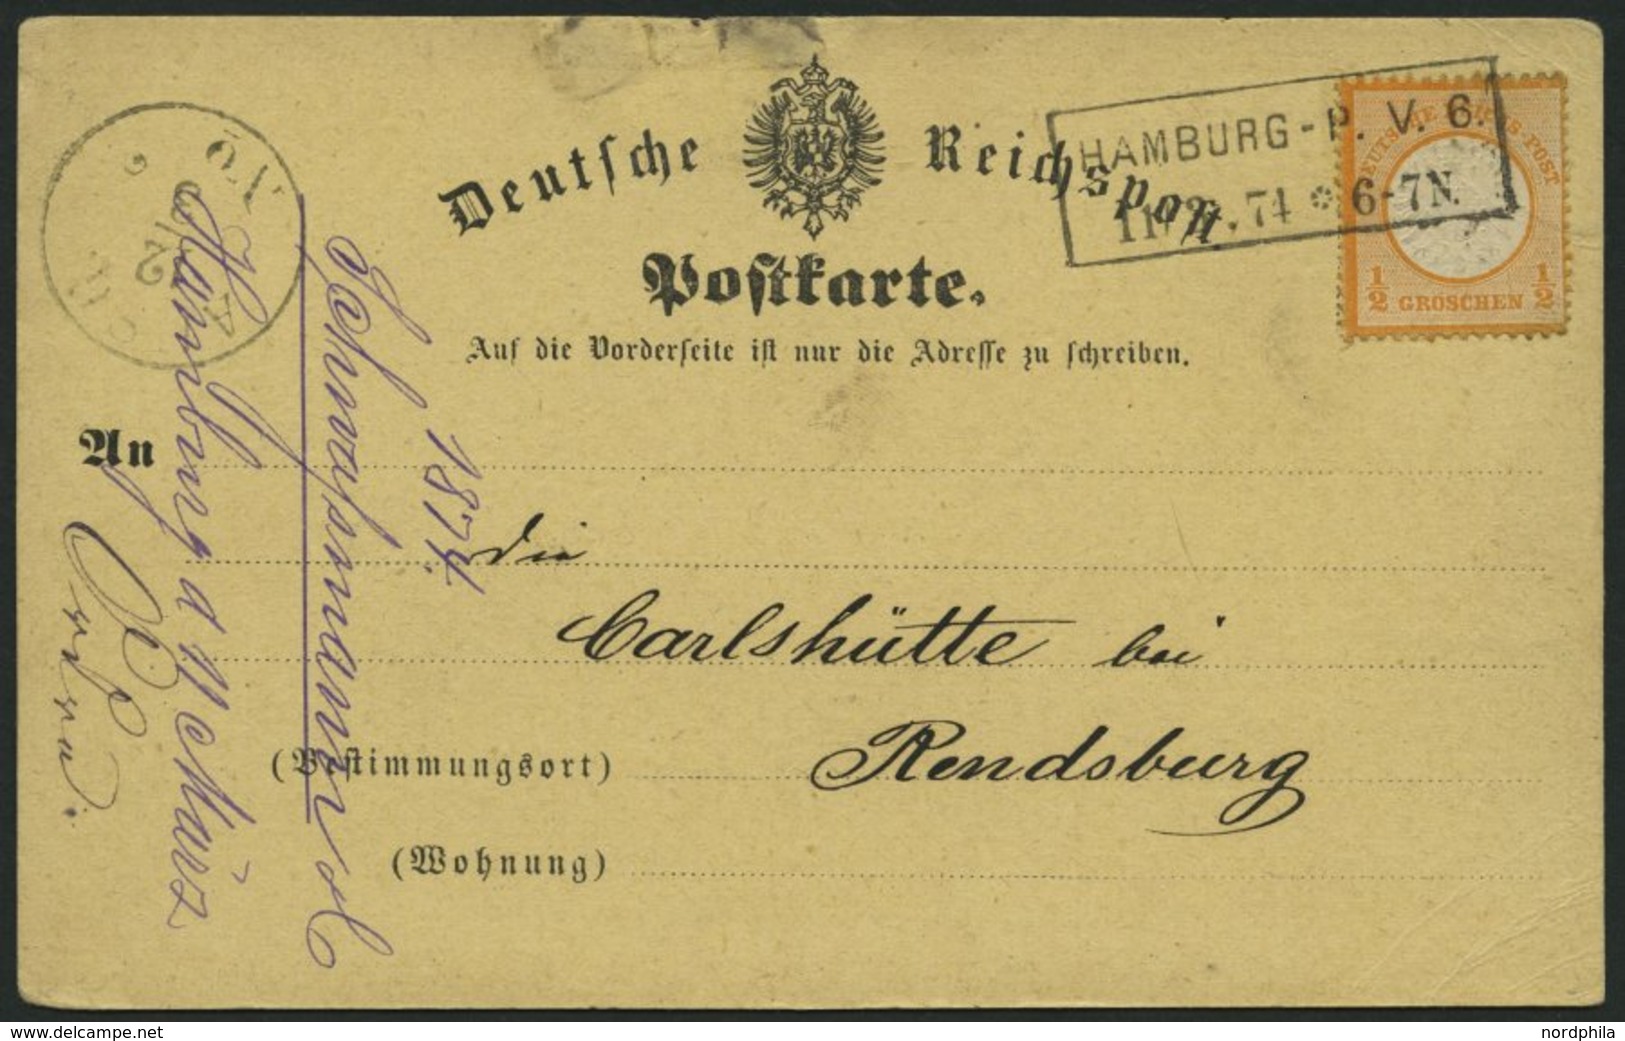 Deutsche Reichspost
Postkarte.
Auf die Vorderseite ist nur die Adresse zu schreiben.
HAMBURG - P. V. 6.
74 6-7N.
DEUTSCHE REICHS-POST
1/2 GROSCHEN 1/2
An
die
Carlshütte bei
Rendsburg
(Bestimmungsort)
(Wohnung)
1874
Hamburg a März
www.delcampe.net
nordphila